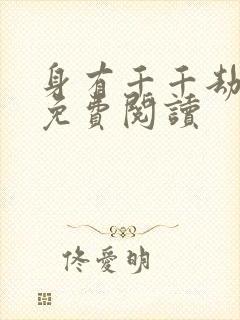 身有千千劫
免費閱讀
佟愛明